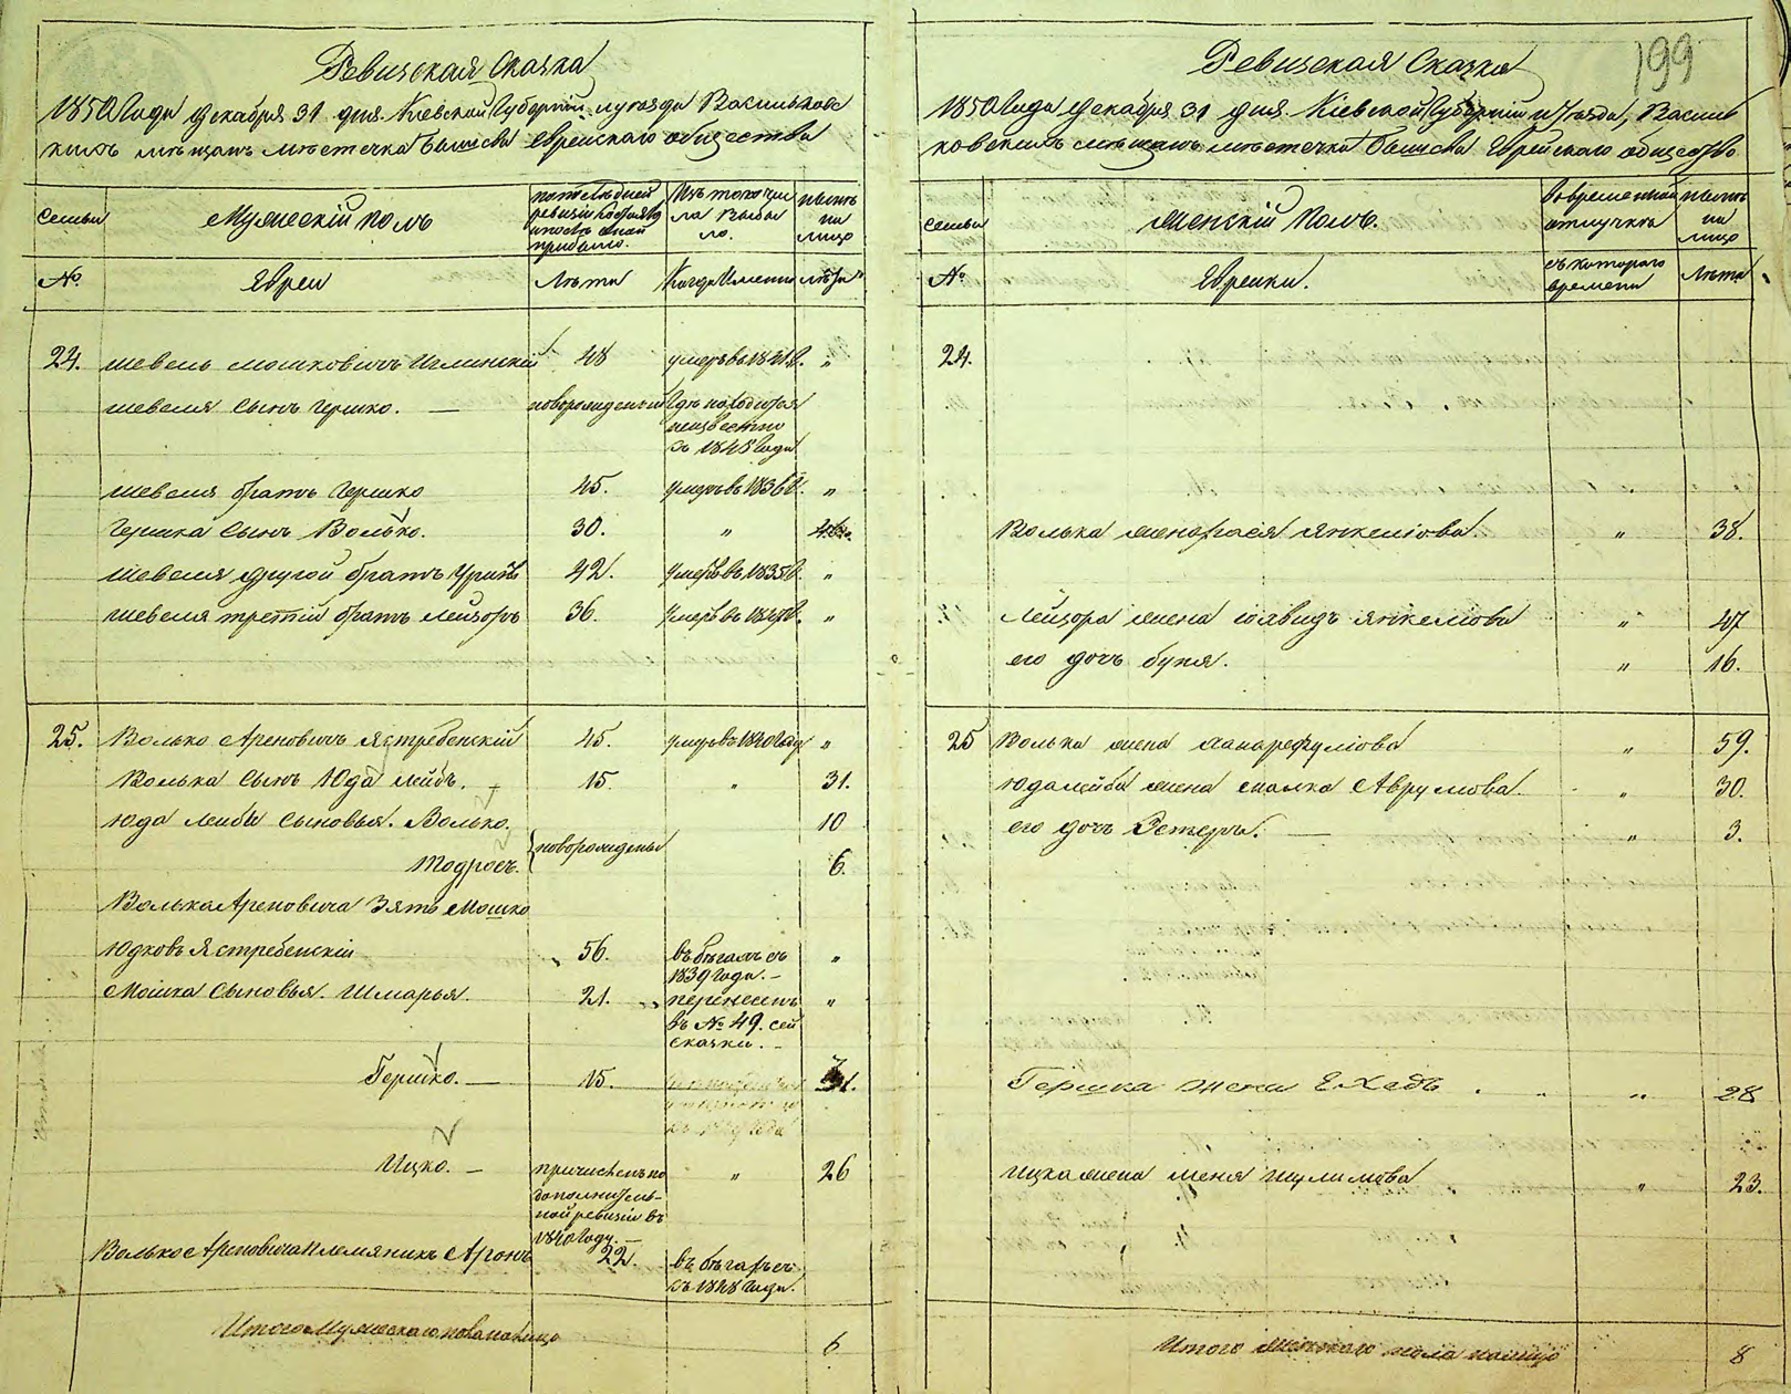 Ревизская Сказка
1850 Года Декабря 31 дня. Кіевской Губерніи и уезда Васильков
кимъ мѣщанъ мѣстечка Бышева Еврейскаго общества
семьи
Мужескій полъ
по последней
ревизіи состояло
и после оной
прибыло.
Изъ того чи
сла выбы
ло.
ныне
на
лицо
№
Евреи
Лѣта
Когда именно
лѣта
24.
Шевель Мошковичъ Иглинскій
48
умеръ въ 1841 г.
"
Шевеля сынъ Гершко. —
новорожденный
Где находится
неизвестно
съ 1848 Года
Шевеля братъ Гершко
45.
умеръ въ 1836 г.
"
Гершка сынъ Волько.
30.
"
Шевеля другой братъ
42.
умеръ въ 1835 г.
"
Шевеля третій братъ Лейзоръ
36.
умеръ въ
"
25.
Волько Ароновичъ Ястребенскій
45.
умеръ въ 1840 году
"
Волька сынъ Юда Лейбъ.
15.
"
31.
Юда Лейбы сыновья. Волько.
10
новорожденые
Тодросъ.
6.
Волька Ароновича Зять Мошко
Юдковъ Ястребенскій
56.
въ бегахъ съ
1839 года. —
"
Мошка сыновья. Шмарья.
21.
перенесенъ
въ № 49. сей
сказки. —
"
Гершко. —
15.
31.
Ицко. —
причисленъ по
дополнитель-
ной ревизіи въ
1840 году. —
"
26
Волько Ароновича племянникъ Аронъ
22.
въ бегахъ
съ 1848 Года.
Итого Мужескаго пола на лицо
6
199
Ревизская Сказка
1850 Года Декабря 31 дня. Кіевской Губерніи и Уезда, Василь
ковскимъ мѣщанъ мѣстечка Бышева Еврейскаго общества
семьи
Женскій Полъ.
Во временной
отлучке
ныне
на
лицо
№
Еврейки.
съ котораго
времени
Лѣта
24.
Волька жена Янкеліова.
"
38.
Лейзора жена Янкеліова
"
47
его дочъ Буня.
"
16.
25
Волька жена
"
59.
Юда Лейба жена Малка Аврумова.
"
30.
его дочъ Эстеръ. —
"
3.
Гершка жена
"
28
Ицка жена Меня Шулимова
"
23.
Итого женскаго пола налицо
8